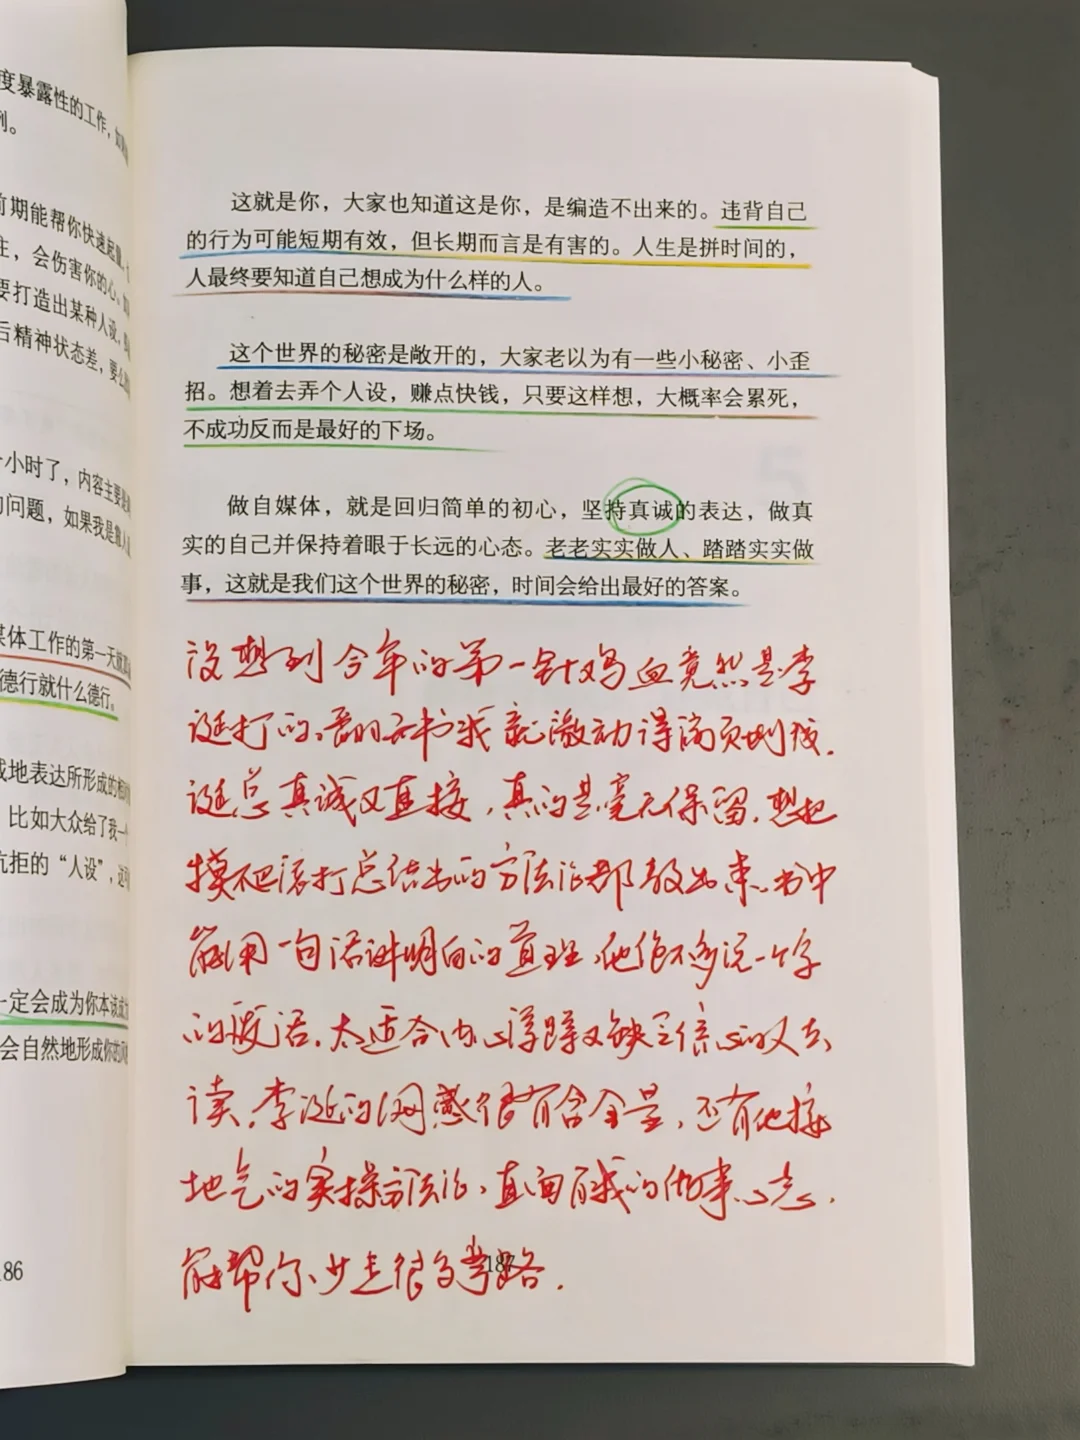 度暴露性的工作，如
列。
前期能帮你快速起量，
主，会伤害你的心。
要打造出某种人设，
后精神状态差，要么
一小时了，内容主要是
的问题，如果我是
媒体工作的第一天就
德行就什么德行。
成地表达所形成的相
比如大众给了我一
抗拒的“人设”，这
一定会成为你本该成为
会自然地形成你的风
186
这就是你，大家也知道这是你，是编造不出来的。违背自己
的行为可能短期有效，但长期而言是有害的。人生是拼时间的，
人最终要知道自己想成为什么样的人。
这个世界的秘密是敞开的，大家老以为有一些小秘密、小歪
招。想着去弄个人设，赚点快钱，只要这样想，大概率会累死，
不成功反而是最好的下场。
做自媒体，就是回归简单的初心，坚持真诚的表达，做真
实的自己并保持着眼于长远的心态。老老实实做人、踏踏实实做
事，这就是我们这个世界的秘密，时间会给出最好的答案。
没想到今年的第一针鸡血竟然是李
诞打的。看的书我就激动得满页划线.
诞总真诚又直接，真的是毫无保留.想把
摸爬滚打总结出的方法论都教出来.书中
能用一句话讲明白的道理，他绝不多说一个字
的废话.太适合内心浮躁又缺乏信心的人去
读.李诞的网感很有含金量，还有他接
地气的实操方法论，直面自我的做事心态.
能帮你少走很多弯路.
187